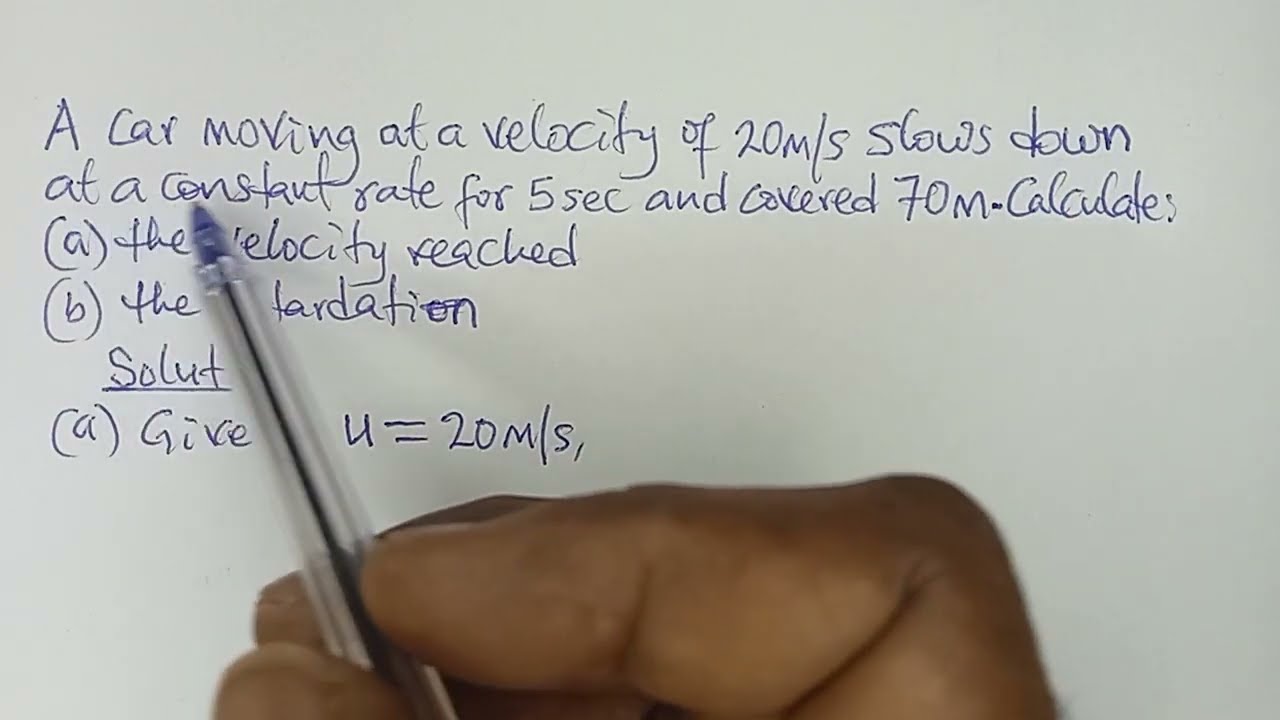 A car moving at a velocity of 20m/s slows down
at a constant rate for 5sec and covered 70m. Calculate:
(a) the velocity reached
(b) the tardation
Solut
(a) Give u = 20m/s,